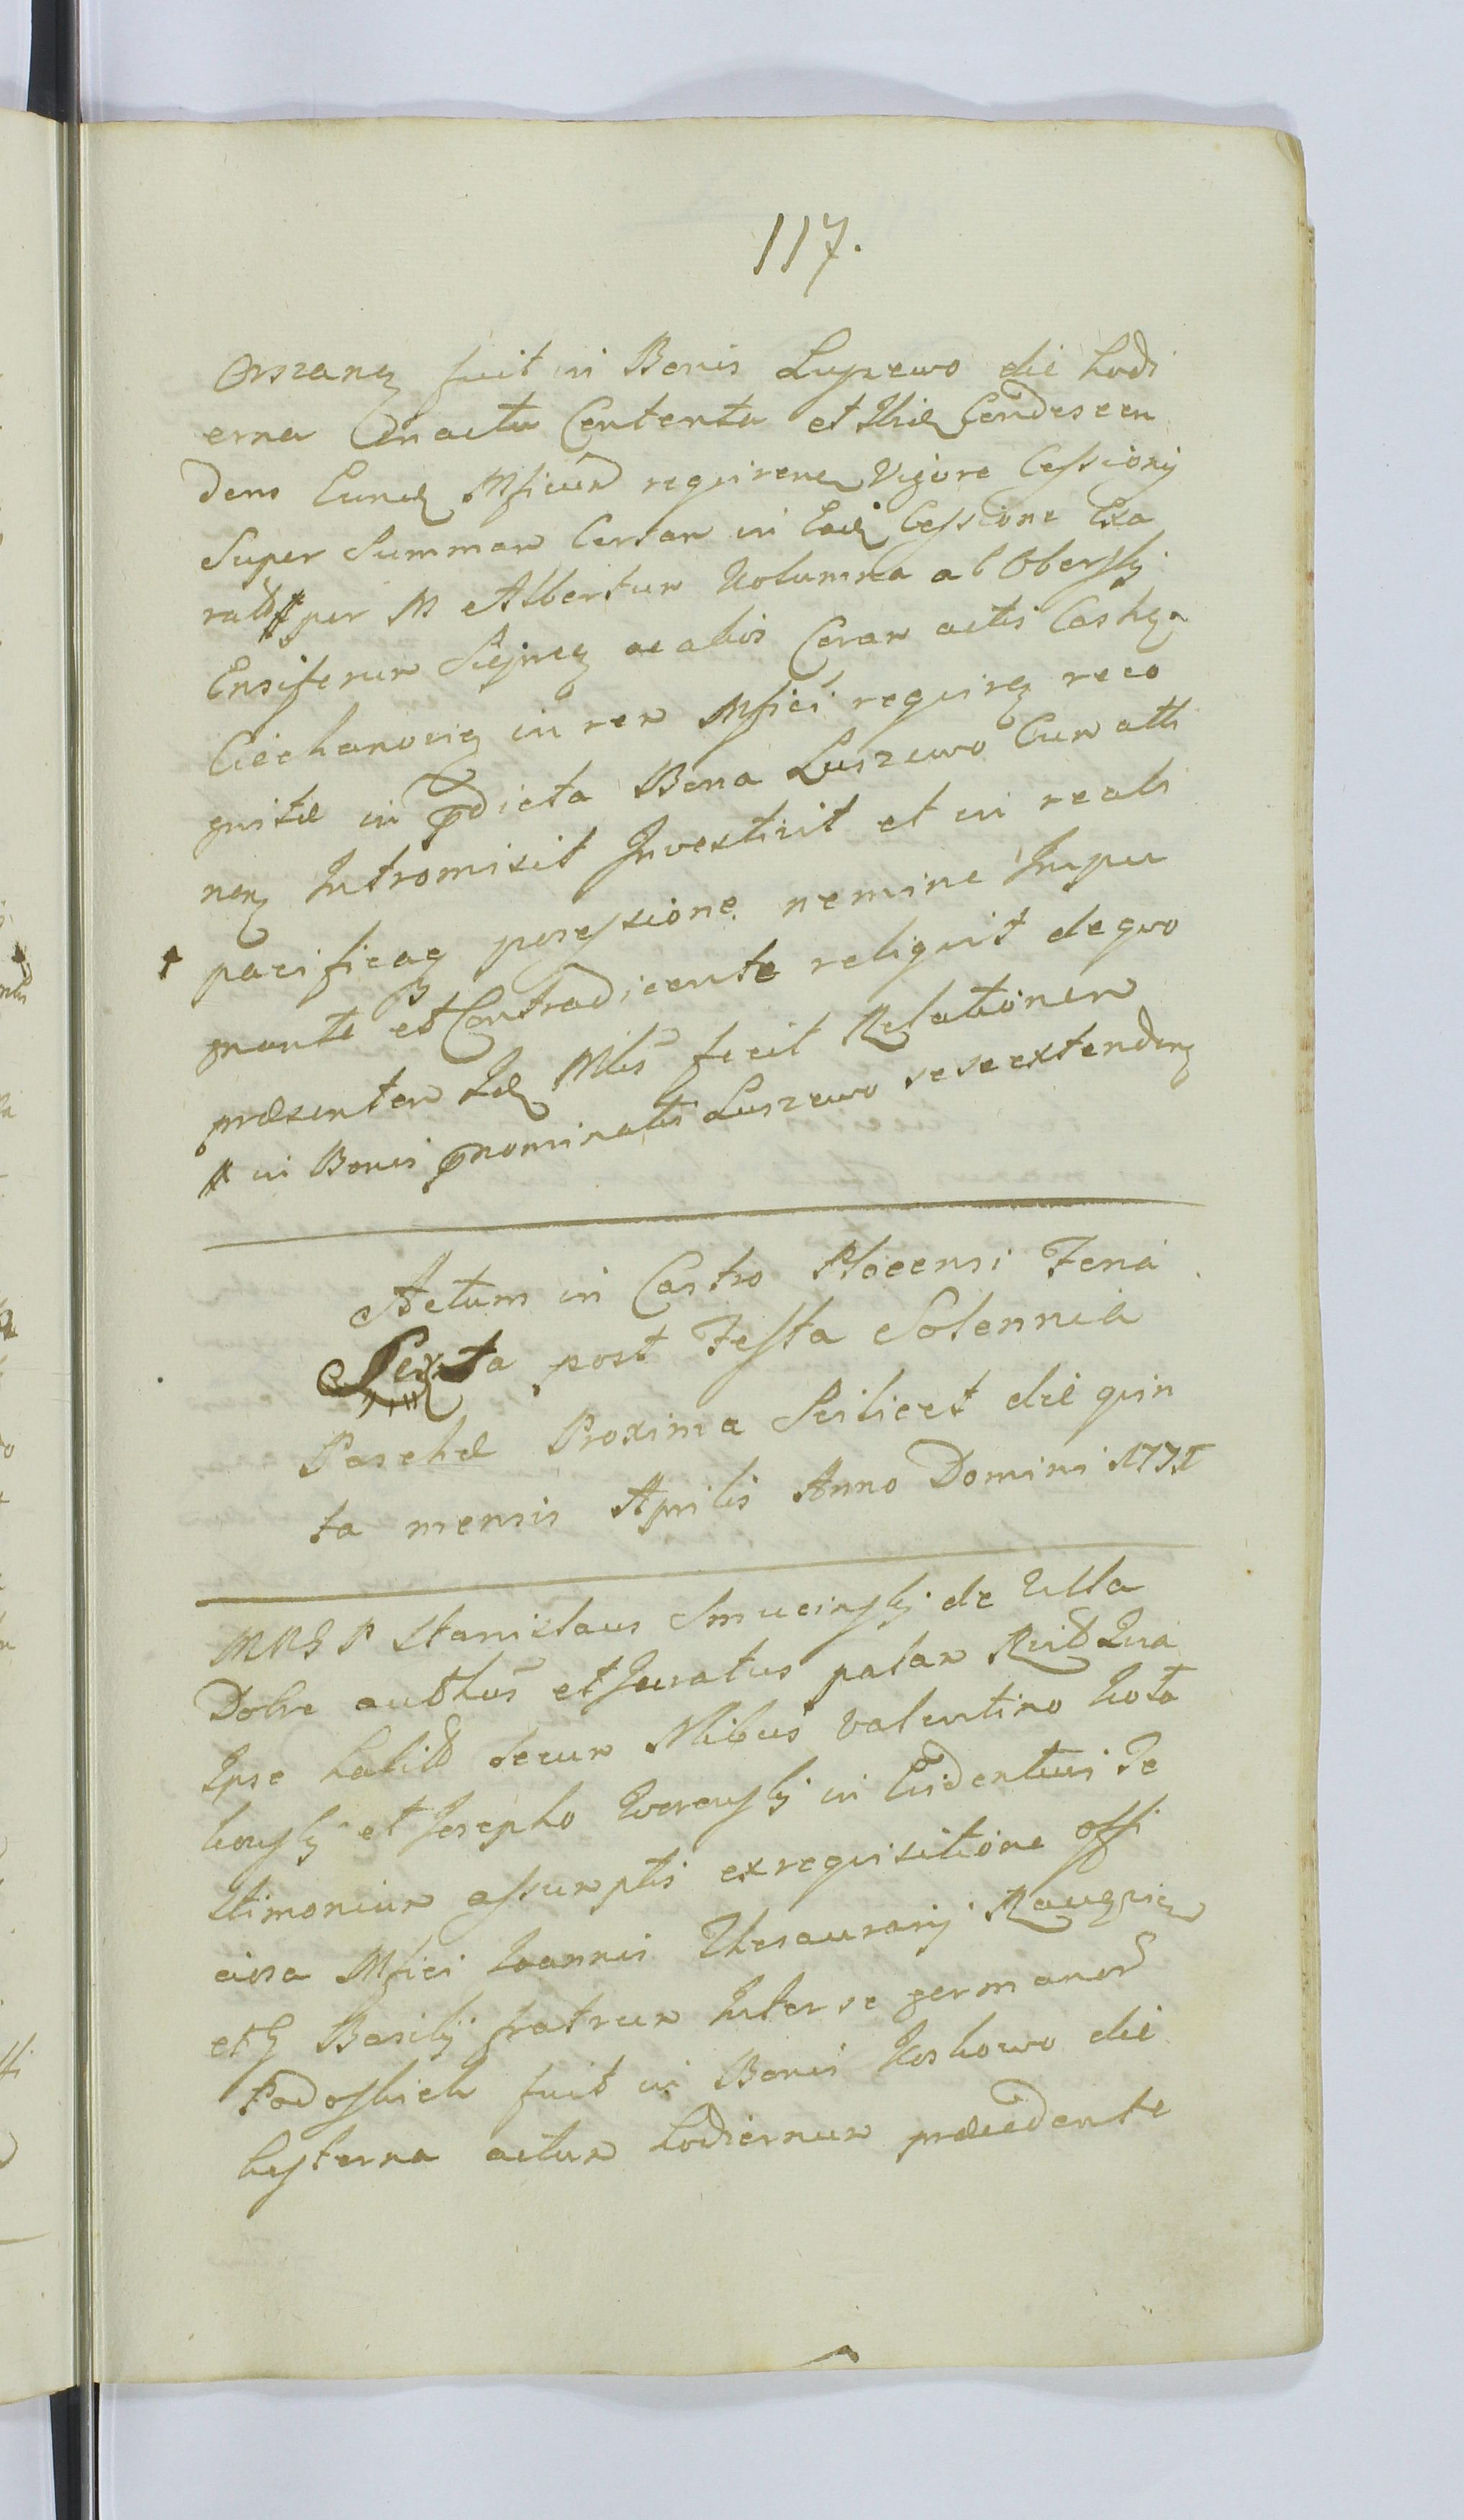 117.
Orszang fuit in Bonis Luszewo die hodi
erna Con actu Contenta et Ibid Condescen
dens Eund Mficum requirent Vigore Cessionis
Super Summam Certam in Ead Cessione Exa
rat # per M Albertum Kolumna ab Obersky
Ensiferum ac alios Coram actis Castr
Ciechanovien in rem Mfici requiren reco
gnitæ in pdicta Bona Luszewo Cum atti
nen Intromisit Investivit et in reali
pacificaq possessione nemine Impu
gnante et Contradicente reliquit de quo
præsentem Id Mlis fecit Relationem
# in Bonis pnominatis Luszewo sese extenden
Actum in Castro Plocensi Feria
Sexta post Festa Solennia
Paschæ Proxima Scilicet die quin
ta mensis Aprilis Anno Domini 177
MRGP Stanislaus Smucinsky de Villa
Dobre authus et Juratus palam Quia
Ipse habitt Secum Nlibus Valentino
et Josepho in Evidentius Te
stimonium assumptis ex requisitione offi
ciosa Mfici Joannis Thesaurarij
et G Basilij fratrum Inter se german
Podoskich fuit in Bonis Koskowo die
hesterna actum hodiernum præcedente